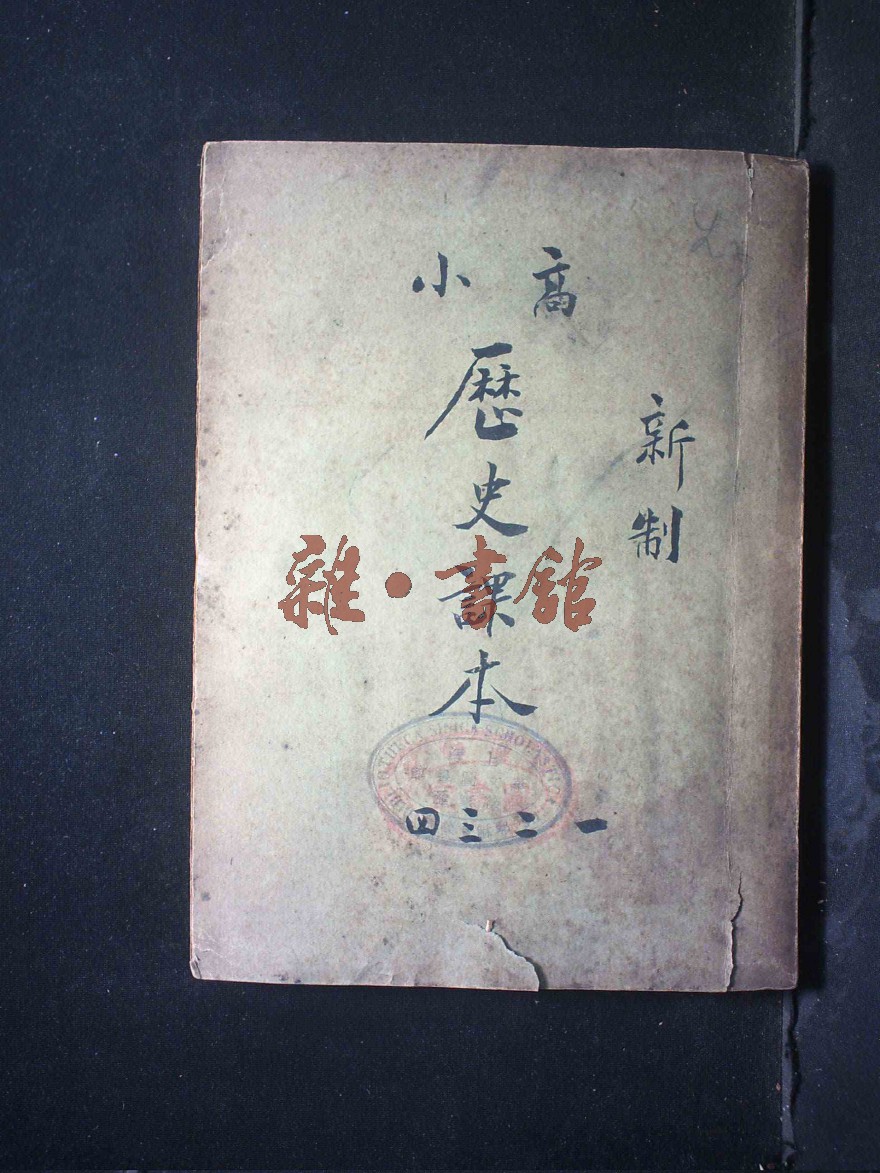 新制
高小
歷史課本
一二三四
雜·書館